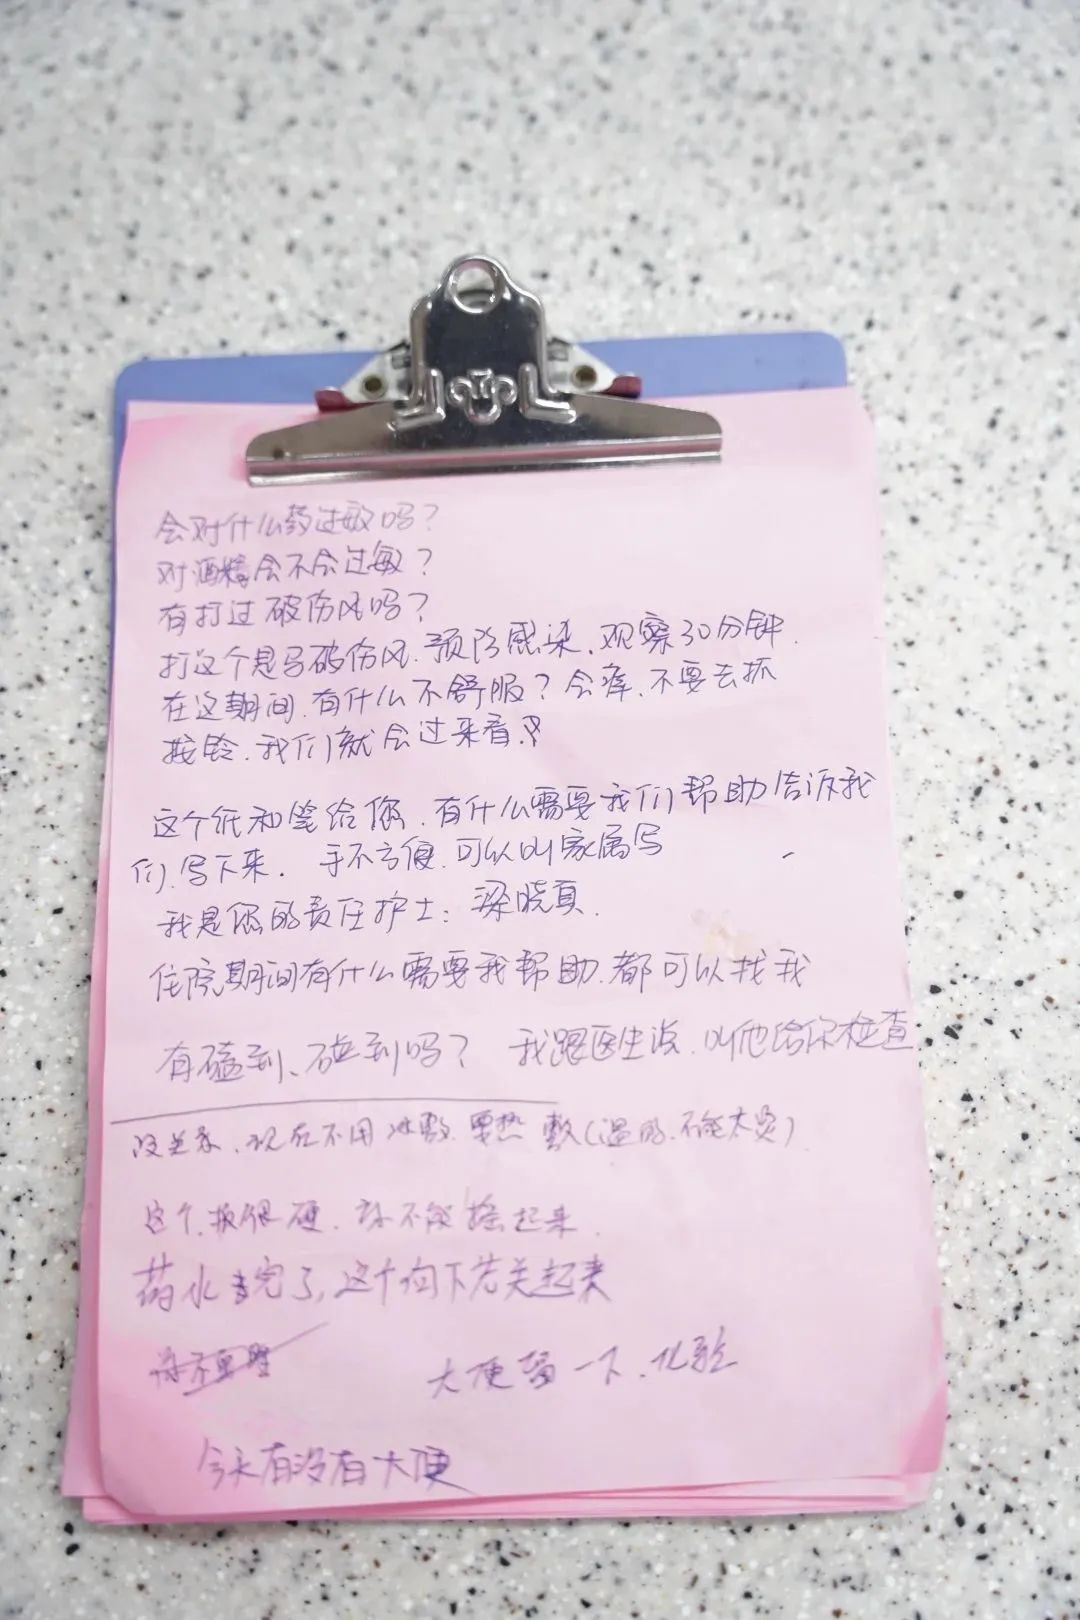 会对什么药过敏吗？
对酒精会不会过敏？
有打过破伤风吗？
打这个是马破伤风.预防感染.观察30分钟.
在这期间.有什么不舒服？会痒.不要去抓
按铃.我们就会过来看.
这个纸和笔给您.有什么需要我们帮助告诉我
们.写下来. 手不方便.可以叫家属写
我是您的责任护士：梁晓真.
住院期间有什么需要我帮助.都可以找我
有磕到、碰到吗？ 我跟医生说.叫他给你检查.
没关系.现在不用冰敷.要热敷(温的.不能太烫)
这个.板很硬.你不能摇起来.
药水完了,这个向下先关起来
大便留一下.化验
今天有没有大便